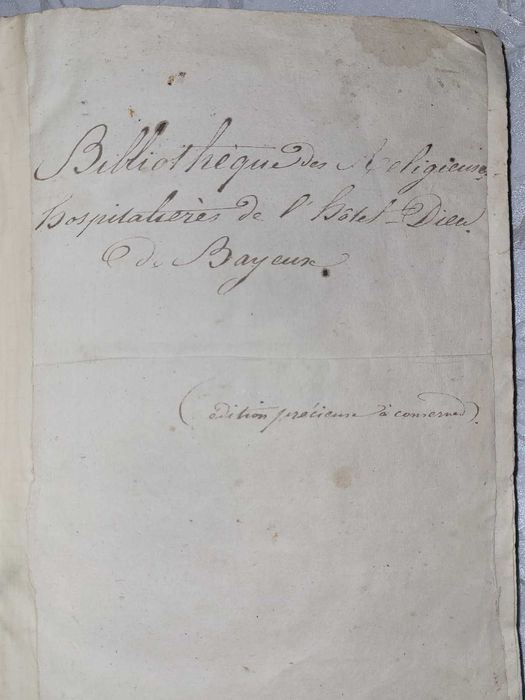 Bibliothèque des Religieuses
hospitalières de l'hôtel-Dieu
de Bayeux
(édition précieuse à conserver)